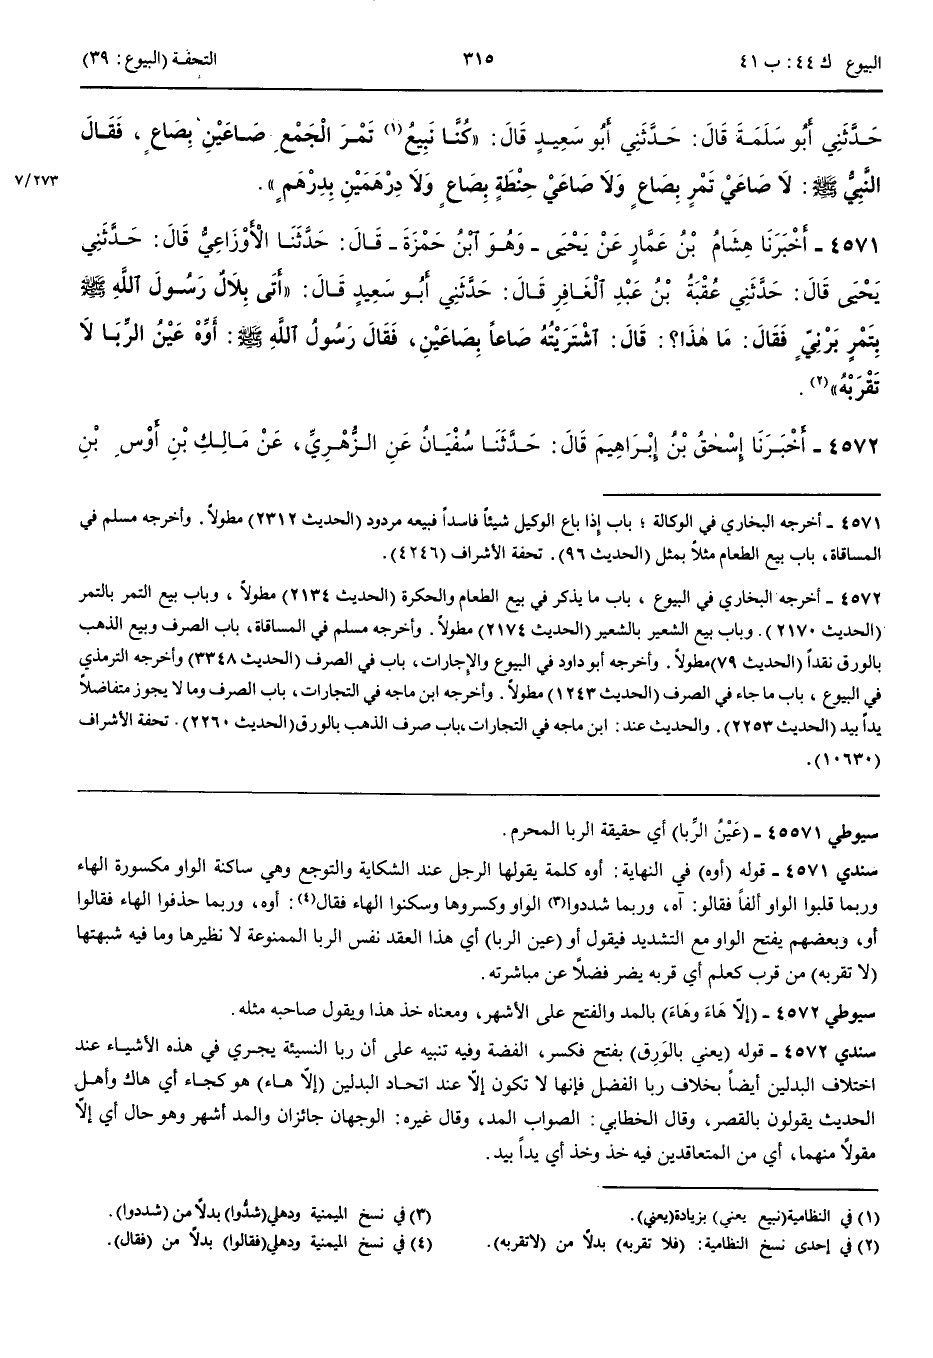 البيوع ك ٤٤: ب ٤١ ٣١٥ التحفة (البيوع: ٣٩)
حَدَّثَنِي أَبُو سَلَمَةَ قَالَ: حَدَّثَنِي أَبُو سَعِيدٍ قَالَ: «كُنَّا نَبِيعُ(١) تَمْرَ الْجَمْعِ صَاعَيْنِ بِصَاعٍ، فَقَالَ
النَّبِيُّ ﷺ: لَا صَاعَيْ تَمْرٍ بِصَاعٍ وَلَا صَاعَيْ حِنْطَةٍ بِصَاعٍ وَلَا دِرْهَمَيْنِ بِدِرْهَمٍ». ٧/٢٧٣
٤٥٧١ ـ أَخْبَرَنَا هِشَامُ بْنُ عَمَّارٍ عَنْ يَحْيَى ـ وَهُوَ ٱبْنُ حَمْزَةَ ـ قَالَ: حَدَّثَنَا الْأَوْزَاعِيُّ قَالَ: حَدَّثَنِي
يَحْيَى قَالَ: حَدَّثَنِي عُقْبَةُ بْنُ عَبْدِ الْغَافِرِ قَالَ: حَدَّثَنِي أَبُو سَعِيدٍ قَالَ: «أَتَى بِلَالٌ رَسُولَ ٱللَّهِ ﷺ
بِتَمْرٍ بَرْنِيٍّ فَقَالَ: مَا هٰذَا؟: قَالَ: ٱشْتَرَيْتُهُ صَاعاً بِصَاعَيْنِ، فَقَالَ رَسُولُ ٱللَّهِ ﷺ: أَوِّهْ عَيْنُ الرِّبَا لَا
تَقْرَبْهُ»(٢).
٤٥٧٢ ـ أَخْبَرَنَا إِسْحٰقُ بْنُ إِبْرَاهِيمَ قَالَ: حَدَّثَنَا سُفْيَانُ عَنِ الزُّهْرِيِّ، عَنْ مَالِكِ بْنِ أَوْسِ بْنِ
٤٥٧١ ـ أخرجه البخاري في الوكالة ؛ باب إذا باع الوكيل شيئاً فاسداً فبيعه مردود (الحديث ٢٣١٢) مطولاً. وأخرجه مسلم في
المساقاة، باب بيع الطعام مثلاً بمثل (الحديث ٩٦). تحفة الأشراف (٤٢٤٦).
٤٥٧٢ ـ أخرجه البخاري في البيوع ، باب ما يذكر في بيع الطعام والحكرة (الحديث ٢١٣٤) مطولاً ، وباب بيع التمر بالتمر
(الحديث ٢١٧٠). وباب بيع الشعير بالشعير (الحديث ٢١٧٤) مطولاً. وأخرجه مسلم في المساقاة، باب الصرف وبيع الذهب
بالورق نقداً (الحديث ٧٩)مطولاً. وأخرجه أبو داود في البيوع والإجارات، باب في الصرف (الحديث ٣٣٤٨) وأخرجه الترمذي
في البيوع ، باب ما جاء في الصرف (الحديث ١٢٤٣) مطولاً. وأخرجه ابن ماجه في التجارات، باب الصرف وما لا يجوز متفاضلاً
يداً بيد (الحديث ٢٢٥٣). والحديث عند: ابن ماجه في التجارات،باب صرف الذهب بالورق(الحديث ٢٢٦٠). تحفة الأشراف
(١٠٦٣٠).
سيوطي ٤٥٥٧١ ـ (عَيْنُ الرِّبا) أي حقيقة الربا المحرم.
سندي ٤٥٧١ ـ قوله (أوه) في النهاية: أوه كلمة يقولها الرجل عند الشكاية والتوجع وهي ساكنة الواو مكسورة الهاء
وربما قلبوا الواو ألفاً فقالو: آه، وربما شددوا(٣) الواو وكسروها وسكنوا الهاء فقال(٤): أوه، وربما حذفوا الهاء فقالوا
أو، وبعضهم يفتح الواو مع التشديد فيقول أو (عين الربا) أي هذا العقد نفس الربا الممنوعة لا نظيرها وما فيه شبهتها
(لا تقربه) من قرب كعلم أي قربه يضر فضلاً عن مباشرته.
سيوطي ٤٥٧٢ ـ (إلّا هَاءَ وهَاءَ) بالمد والفتح على الأشهر، ومعناه خذ هذا ويقول صاحبه مثله.
سندي ٤٥٧٢ ـ قوله (يعني بالوَرِق) بفتح فكسر، الفضة وفيه تنبيه على أن ربا النسيئة يجري في هذه الأشياء عند
اختلاف البدلين أيضاً بخلاف ربا الفضل فإنها لا تكون إلّا عند اتحاد البدلين (إلّا هاء) هو كجاء أي هاك وأهل
الحديث يقولون بالقصر، وقال الخطابي: الصواب المد، وقال غيره: الوجهان جائزان والمد أشهر وهو حال أي إلّا
مقولاً منهما، أي من المتعاقدين فيه خذ وخذ أي يداً بيد.
(١) في النظامية(نبيع يعني) بزيادة(يعني).
(٢) في إحدى نسخ النظامية: (فلا تقربه) بدلاً من (لاتقربه).
(٣) في نسخ الميمنية ودهلي(شدُّوا) بدلاً من (شددوا).
(٤) في نسخ الميمنية ودهلي(فقالوا) بدلاً من (فقال).